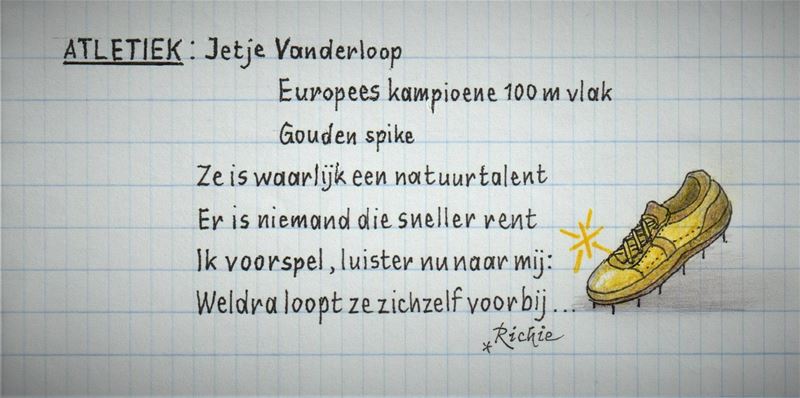 ATLETIEK: Jetje Vanderloop
Europees kampioene 100 m vlak
Gouden spike
Ze is waarlijk een natuurtalent
Er is niemand die sneller rent
Ik voorspel, luister nu naar mij:
Weldra loopt ze zichzelf voorbij...
*Richie